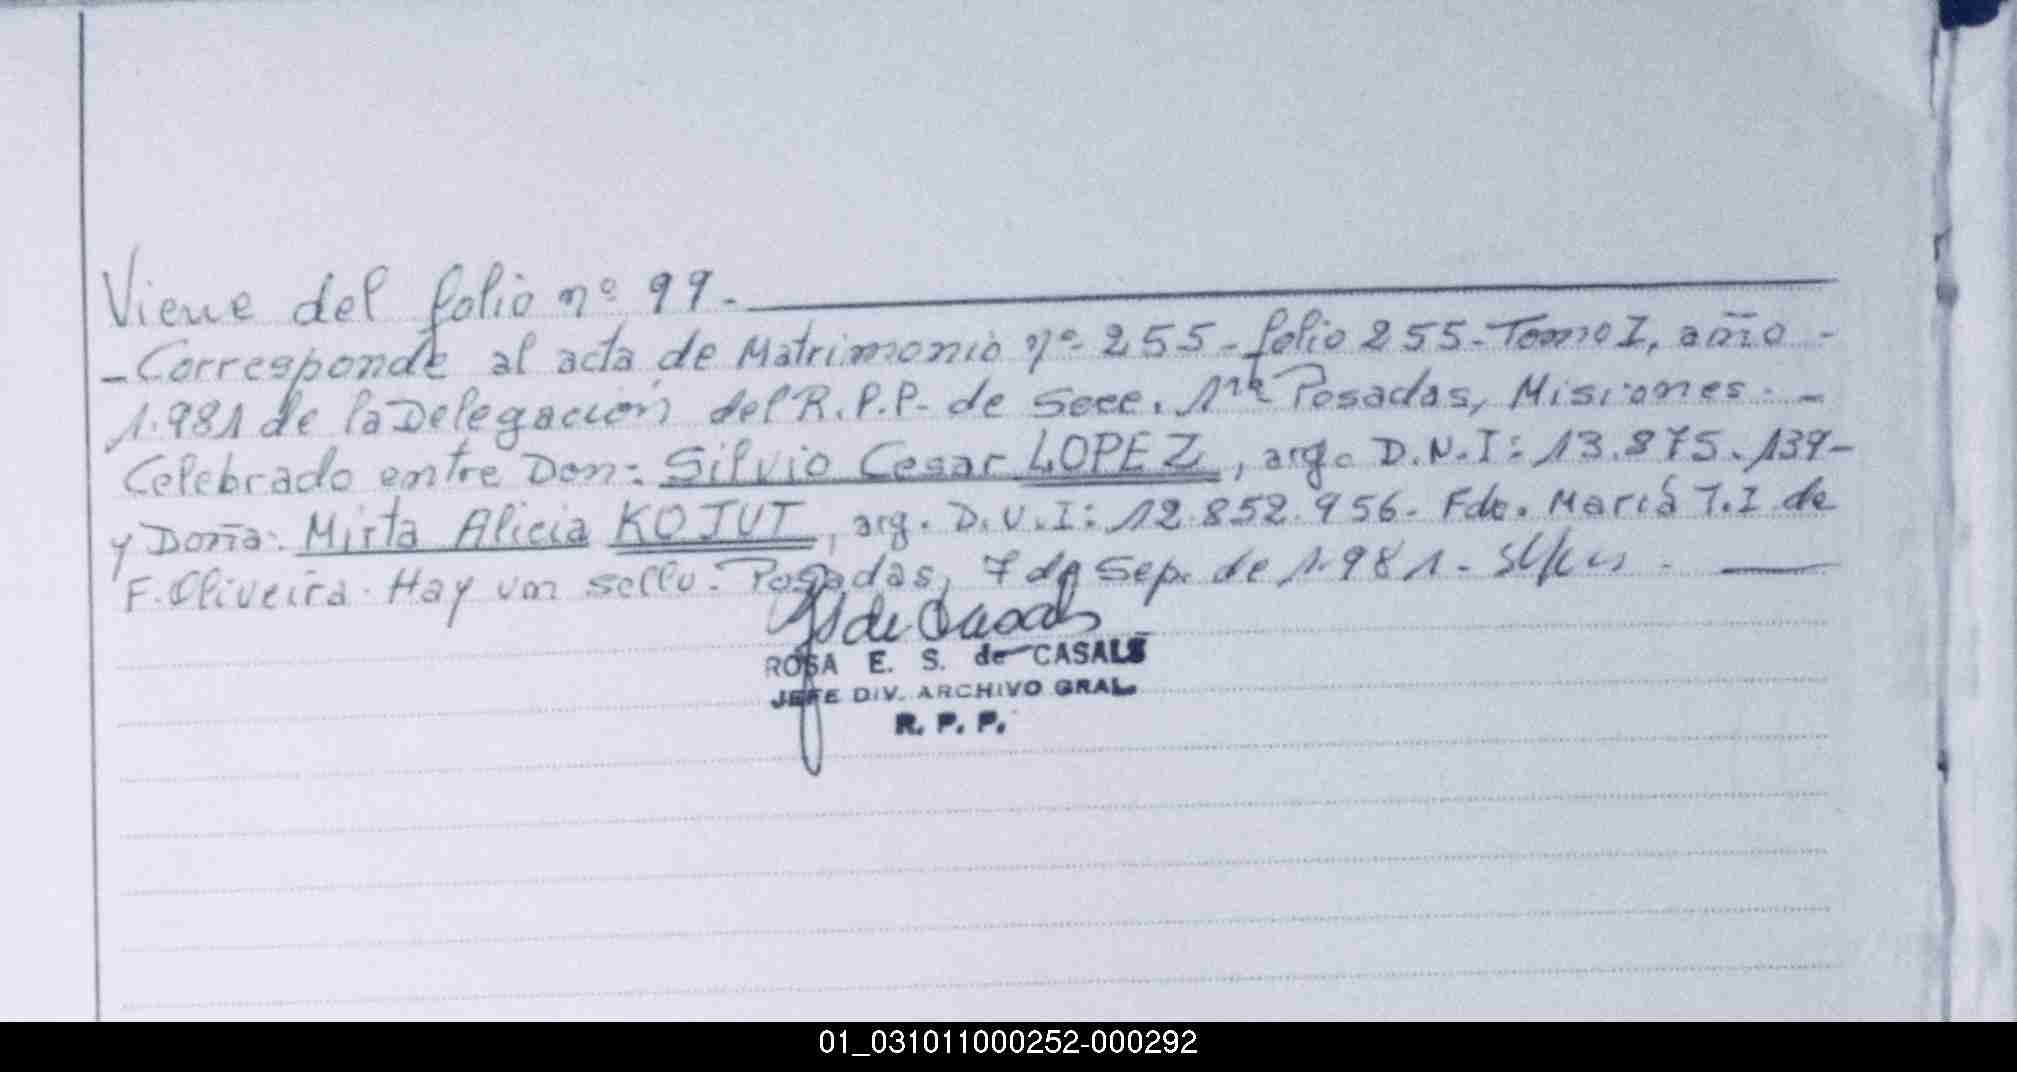 Viene del folio nº 99.-
- Corresponde al acta de Matrimonio nº 255 - folio 255 - Tomo I, año -
1.981 de la Delegación del R.P.P. de Secc. 1ra Posadas, Misiones. -
Celebrado entre Don: Silvio Cesar LOPEZ, arg. D.N.I: 13.875.139-
y Doña: Mirta Alicia KOJUT, arg. D.N.I: 12.852.956. Fdo. María T.I. de
F. Oliveira. Hay un sello. Posadas, 7 de Sep. de 1.981.-
ROSA E. S. de CASALS
JEFE DIV. ARCHIVO GRAL.
R. P. P.
01_031011000252-000292